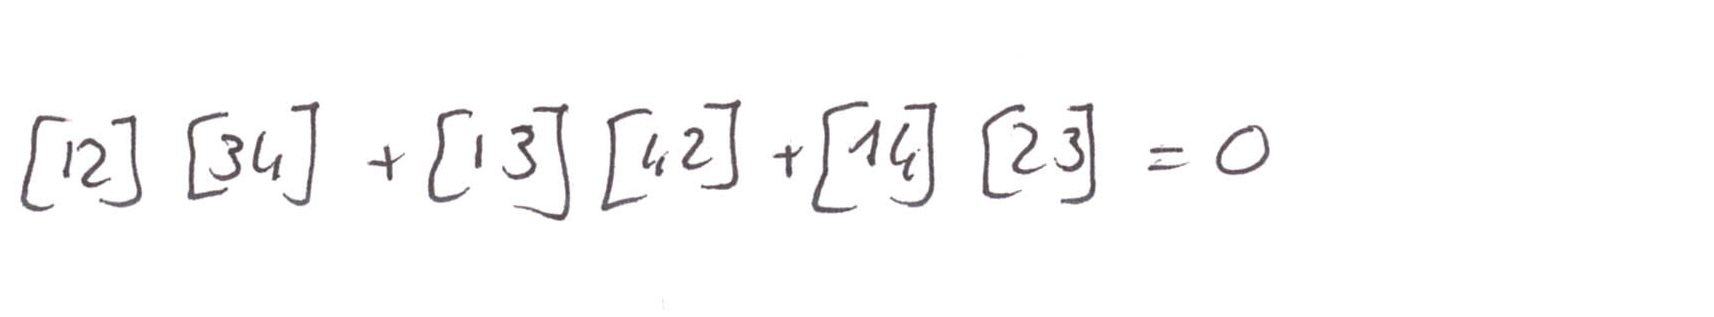 [12] [34] + [13] [42] + [14] [23] = 0